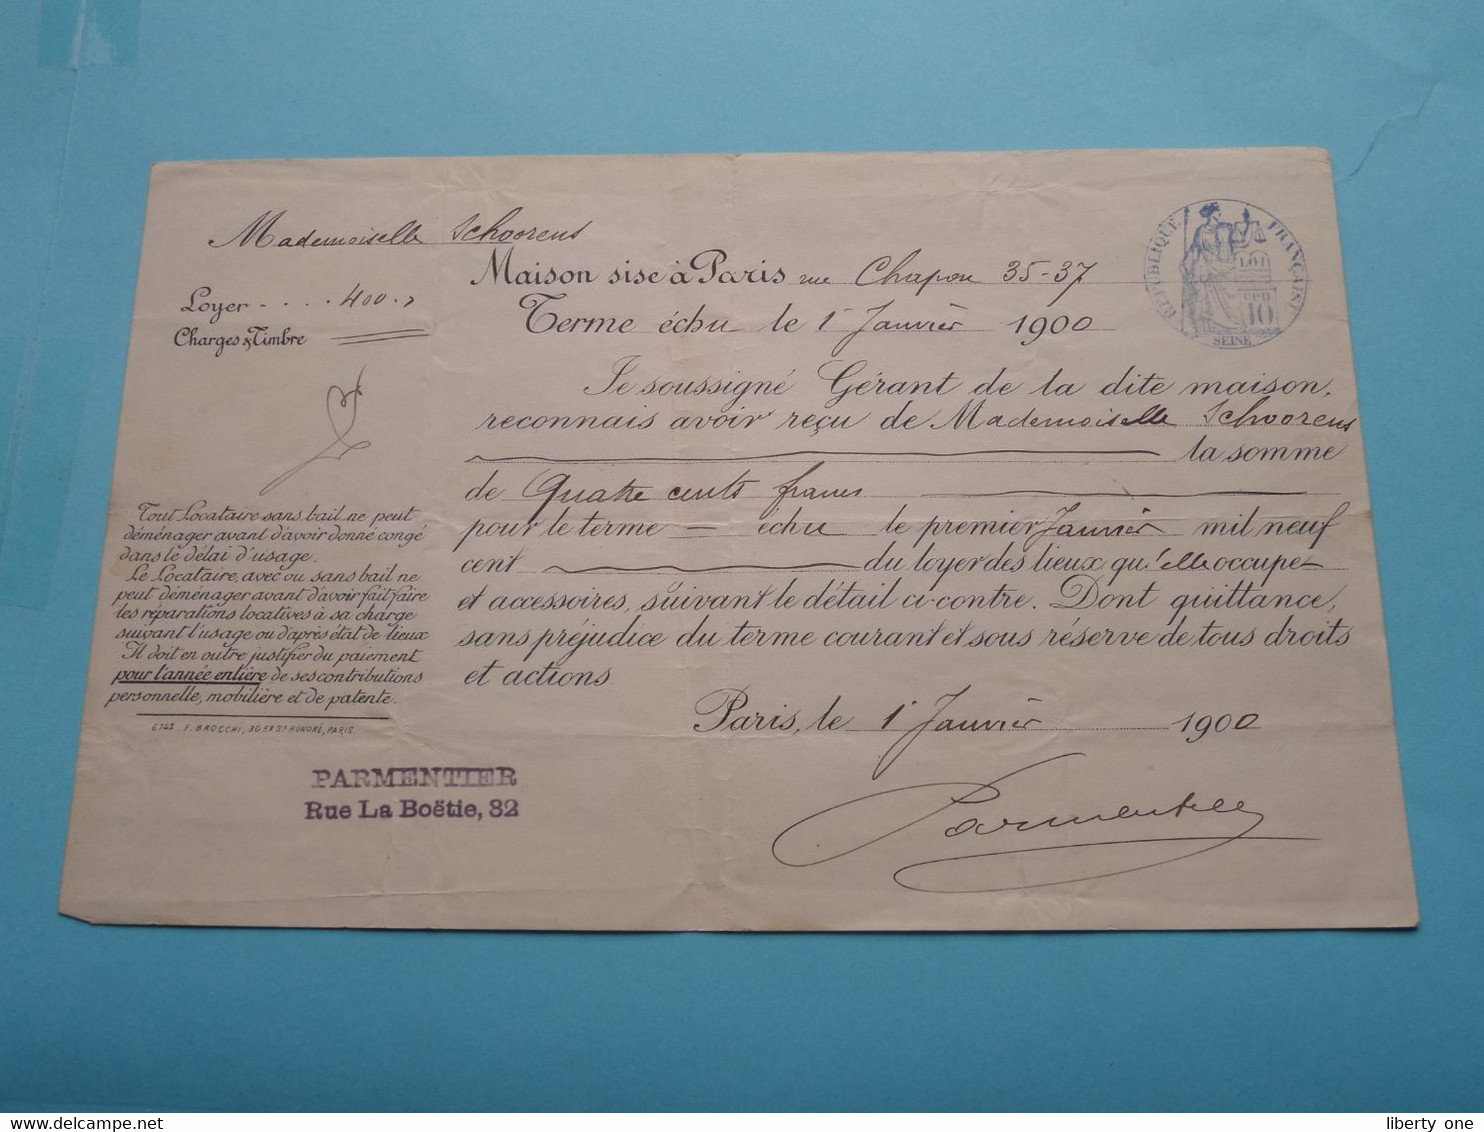 Mademoiselle Schoorens
Loyer - . . . 400.,
Charges & Timbre
Maison sise à Paris rue Chapon 35-37
Terme échu le 1er Janvier 1900
RÉPUBLIQUE FRANÇAISE
LOI
10
SEINE
Je soussigné Gérant de la dite maison,
reconnais avoir reçu de Mademoiselle Schoorens
la somme
de Quatre cents francs
pour le terme = échu le premier Janvier mil neuf
cent du loyer des lieux qu'elle occupe
et accessoires, suivant le détail ci-contre. Dont quittance,
sans préjudice du terme courant et sous réserve de tous droits
et actions.
Paris, le 1er Janvier 1900
Parmentier
Tout Locataire sans bail ne peut
déménager avant d'avoir donné congé
dans le délai d'usage.
Le Locataire, avec ou sans bail ne
peut déménager avant d'avoir fait faire
les réparations locatives à sa charge
suivant l'usage ou d'après état de lieux
Il doit en outre justifier du paiement
pour l'année entière de ses contributions
personnelle, mobilière et de patente.
6742. F. BROCCHI, 30 Fg St HONORÉ, PARIS.
PARMENTIER
Rue La Boëtie, 32
liberty one